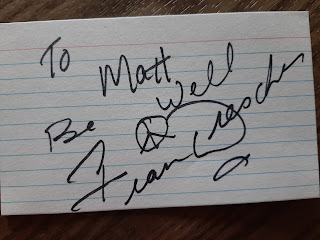 To
Matt
Be Well
Fran Drescher